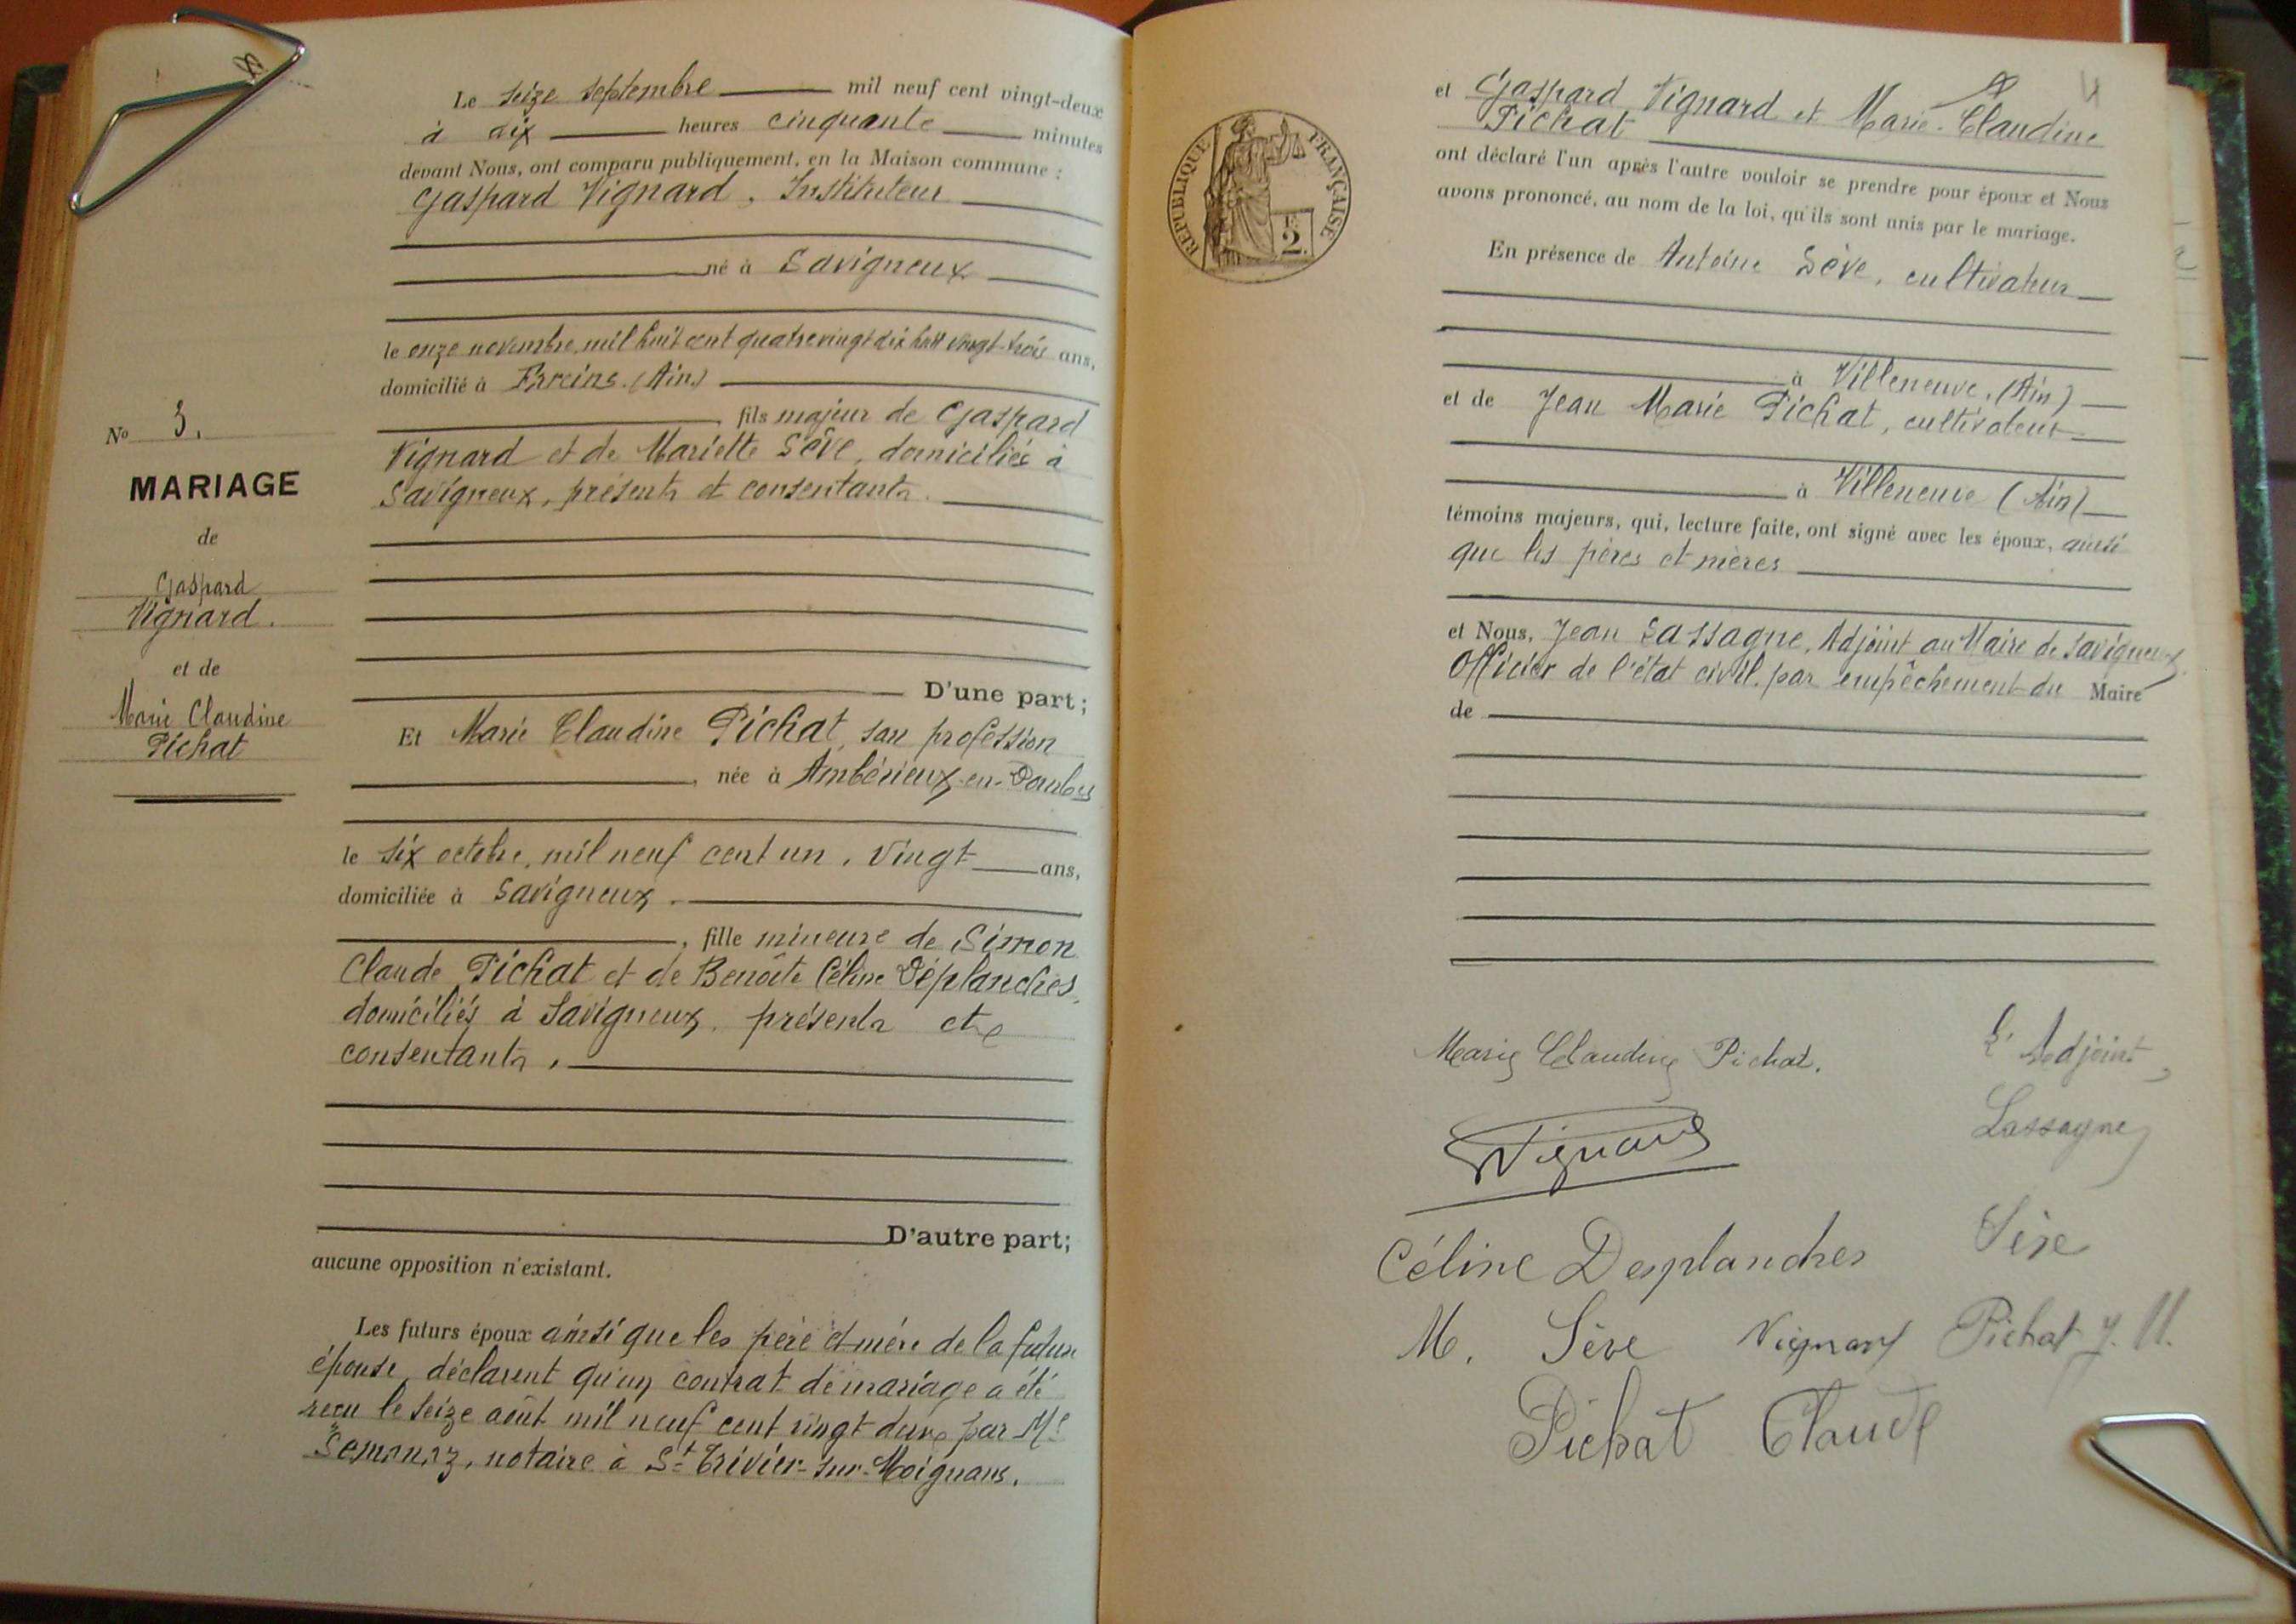 Le seize septembre mil neuf cent vingt-deux
à dix heures cinquante minutes
devant Nous, ont comparu publiquement, en la Maison commune :
Gaspard Vignard, Instituteur
né à Savigneux
le onze novembre mil huit cent quatrevingt dix huit vingt-trois ans,
domicilié à Frreins (Ain)
, fils majeur de Gaspard
Vignard et de Mariette Sève, domiciliés à
Savigneux, présents et consentants.
D'une part ;
Et Marie Claudine Pichat, san profession
, née à Ambérieux-en-Dombes
le six octobre, mil neuf cent un, vingt ans,
domiciliée à Savigneux.
, fille mineure de Simon
Claude Pichat et de Benoîte Céline Déplanches,
domiciliés à Savigneux, présents et
consentants,
D'autre part;
aucune opposition n'existant.
Les futurs époux ainsi que les père et mère de la future
épouse, déclarent qu'un contrat de mariage a été
reçu le seize août mil neuf cent vingt deux par Me
notaire à St Trivier-sur-Moignans.
No 3.
MARIAGE
de
Gaspard
Vignard.
et de
Marie Claudine
Pichat
RÉPUBLIQUE FRANÇAISE
F.
2.
et Gaspard Vignard et Marie-Claudine
Pichat
ont déclaré l'un après l'autre vouloir se prendre pour époux et Nous
avons prononcé, au nom de la loi, qu'ils sont unis par le mariage.
En présence de Antoine Sève, cultivateur
à Villeneuve, (Ain)
et de Jean Marie Pichat, cultivateur
à Villeneuve (Ain)
témoins majeurs, qui, lecture faite, ont signé avec les époux, ainsi
que les pères et mères
et Nous, Jean Lassagne, Adjoint au Maire de Savigneux,
Officier de l'état civil, par empêchement du Maire
de
Marie Claudine Pichat.
L'Adjoint,
Lassagne
Vignard
Céline Desplanches
Sève
M. Sève Vignard Pichat J. M.
Pichat Claude